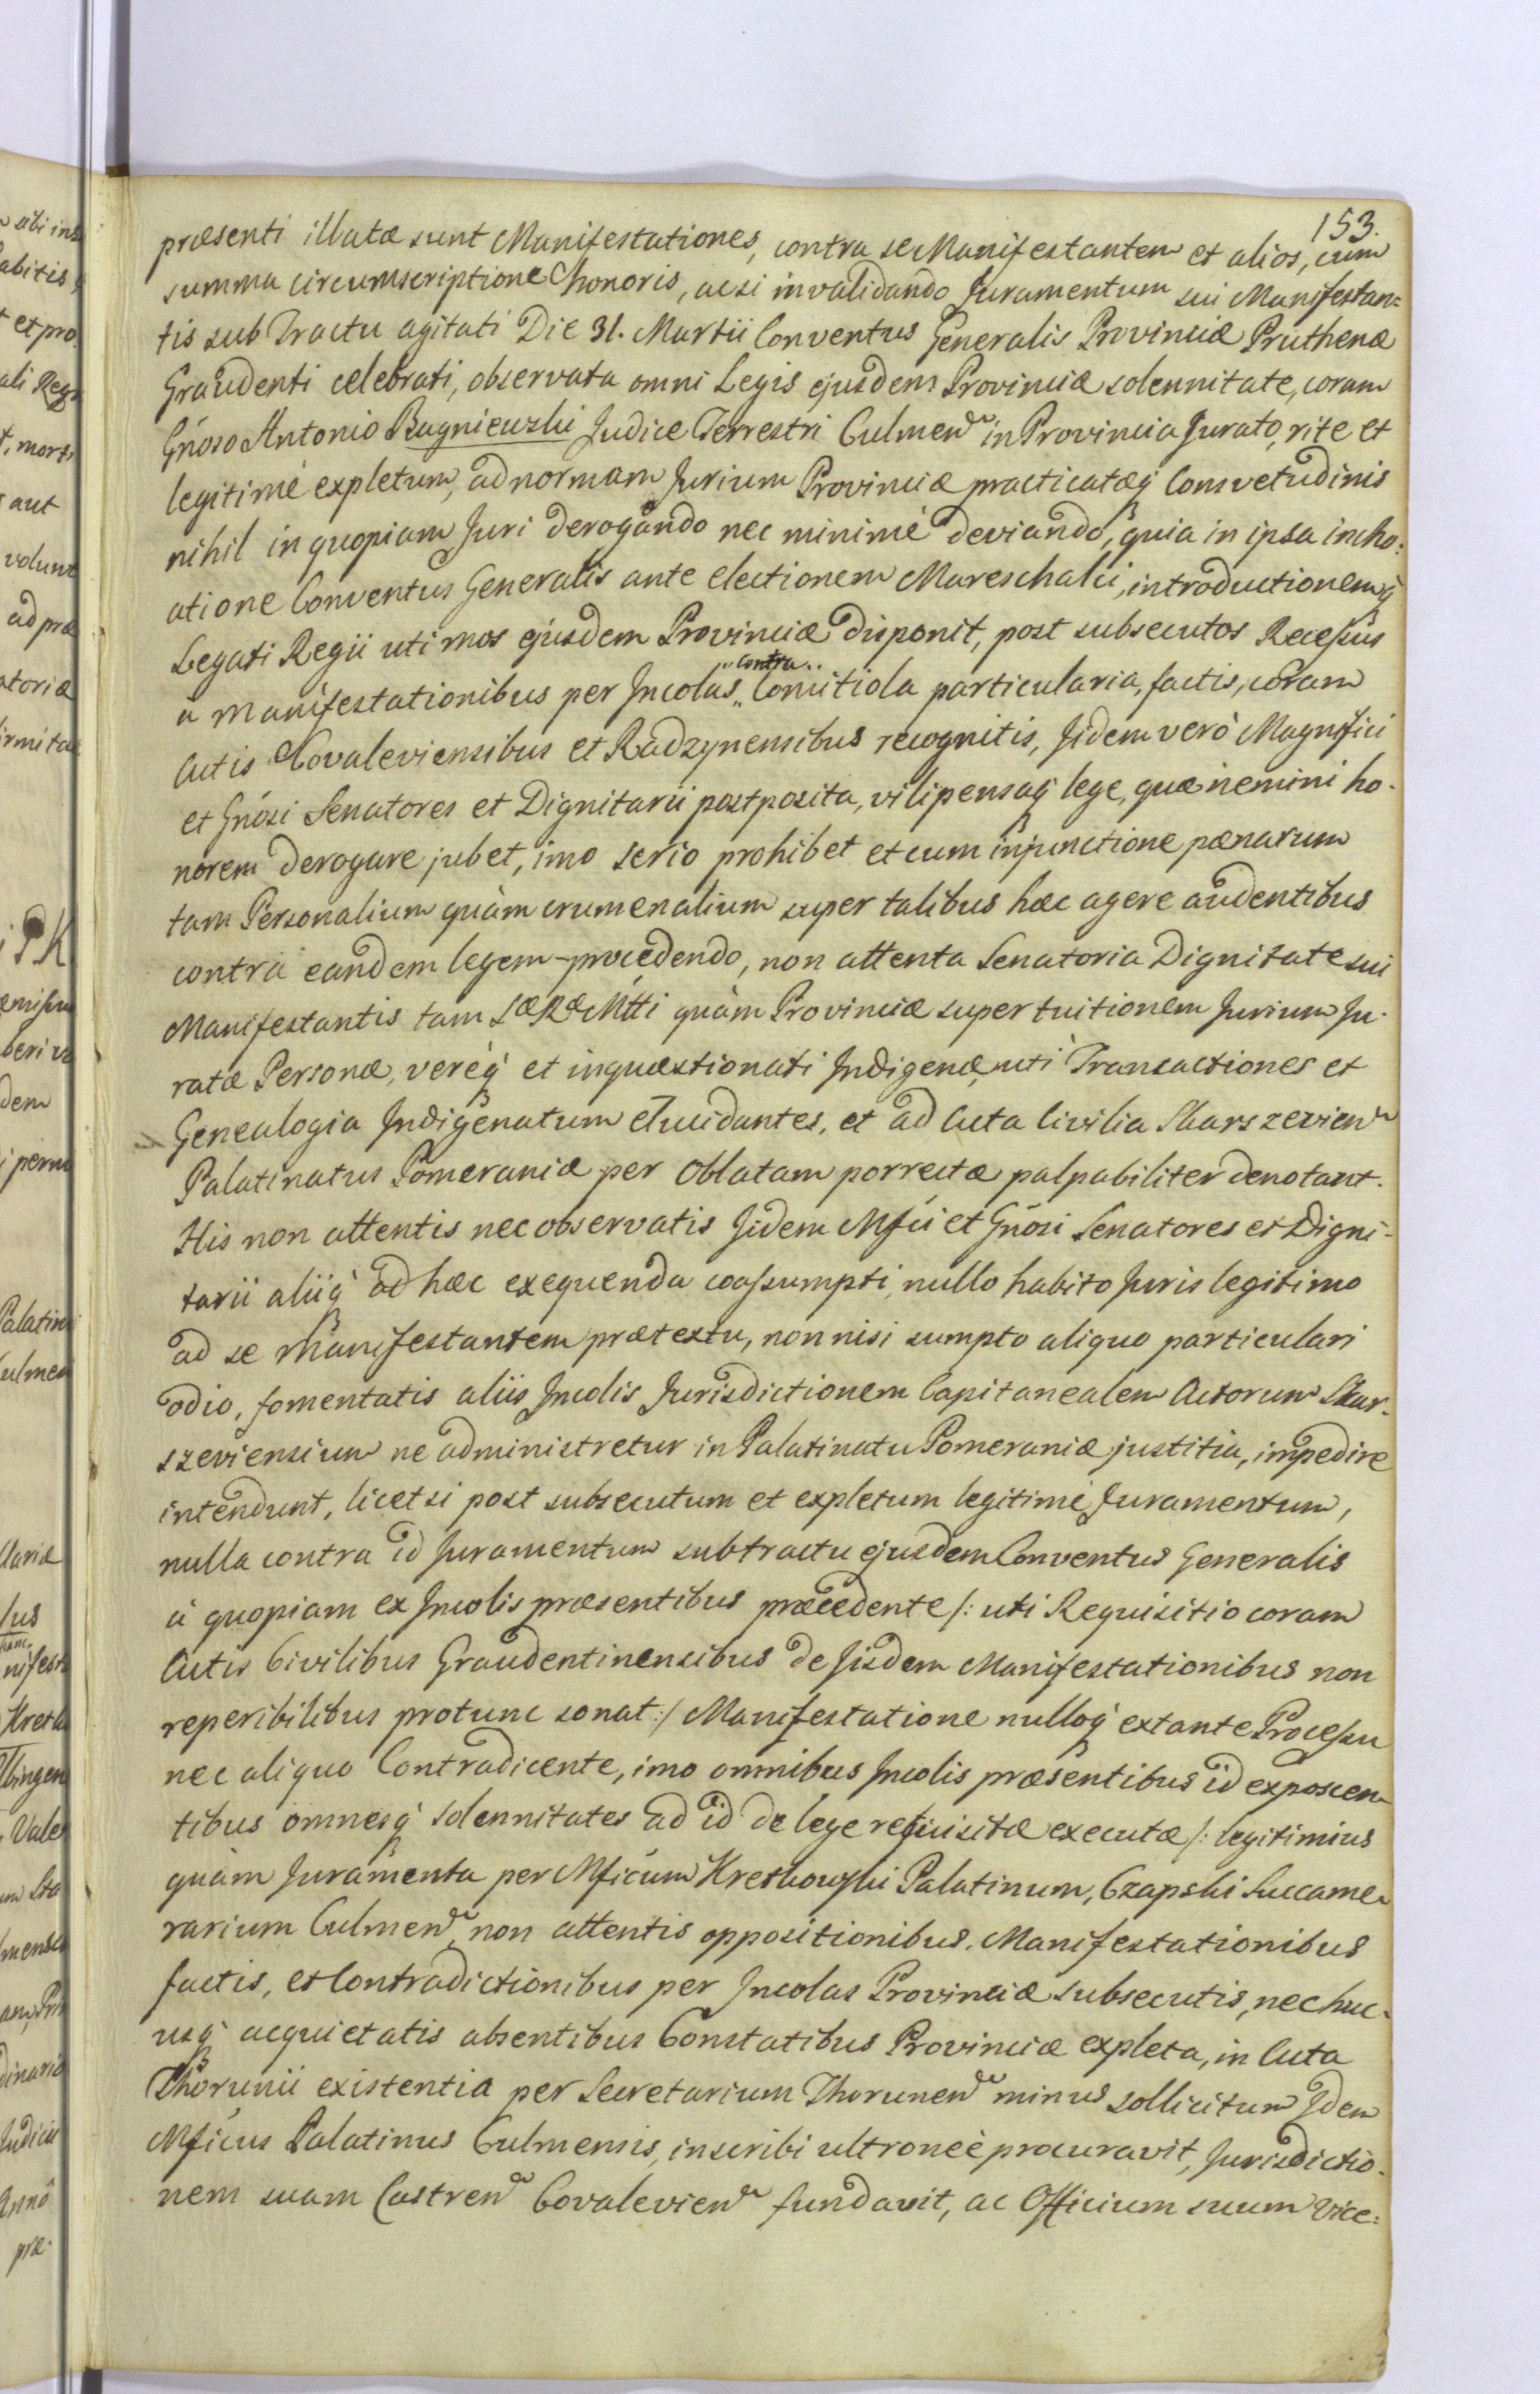 153.
præsenti illatæ sunt Manifestationes, contra se Manifestantem et alios, cum
summa circumscriptione honoris, ac si invalidando Juramentum sui Manifestan=
tis sub Tractu agitati Die 31. Martii Conventus Generalis Provinciæ Pruthenæ
Graudenti celebrati, observata omni Legis ejusdem Provinciæ solennitate, coram
Gnoso Antonio Bagniewski Judice Terrestri Culmen in Provincia Jurato, rite et
legitimè expletum, ad normam Jurium Provinciæ practicatæq Consvetudinis
nihil in quopiam Juri derogando nec minimè deviando, quia in ipsa incho:
atione Conventus Generalis ante electionem Mareschalci, introductionemq
Legati Regii uti mos ejusdem Provinciæ disponit, post subsecutos Recessus
a Manifestationibus per Incolas contra Comitiola particularia, factis, coram
Actis Covaleviensibus et Radzynensibus recognitis, Jidem verò Magnifici
et Gnosi Senatores et Dignitarii postposita, vilipensaq lege, quæ nemini ho-
norem derogare jubet, imo serio prohibet et cum injunctione pænarum
tam Personalium quàm crumenalium super talibus hæc agere audentibus
contra eandem legem procedendo, non attenta Senatoria Dignitate sui
Manifestantis tam Sæ Ræ Mtti quàm Provinciæ super tuitionem Jurium Ju-
ratæ Personæ, verèq et inquæstionati Indigenæ, uti Transactiones et
Genealogia Indigenatum elucidantes, et ad Acta Civilia Skarszevien
Palatinatus Pomeraniæ per Oblatam porrectæ palpabiliter denotant.
His non attentis nec observatis Jidem Mfci et Gnosi Senatores et Digni-
tarii aliiq ad hæc exequenda coassumpti, nullo habito Juris legitimo
ad se Manifestantem prætextu, non nisi sumpto aliquo particulari
odio, fomentatis aliis Incolis Jurisdictionem Capitanealem Actorum Skar-
szeviensium ne administretur in Palatinatu Pomeraniæ justitia, impedire
intendunt, licet si post subsecutum et expletum legitimè Juramentum,
nulla contra id Juramentum sub tractu ejusdem Conventus Generalis
à quopiam ex Incolis præsentibus præcedente /: uti Requisitio coram
Actis Civilibus Graudentinensibus de Jisdem Manifestationibus non
reperibilibus protunc sonat :/ Manifestatione nulloq extante Processu
nec aliquo Contradicente, imo omnibus Incolis præsentibus id exposcen
tibus omnesq solennitates ad id de lege requisitæ executæ /: legitimius
quàm Juramenta per Mficum Kretkowski Palatinum, Czapski Succame
rarium Culmen, non attentis oppositionibus, Manifestationibus
factis, et Contradictionibus per Incolas Provinciæ subsecutis, nec huc-
usq acquietatis absentibus Constatibus Provinciæ expleta, in Acta
Thorunii existentia per Secretarium Thorunen minus sollicitum Idem
Mficus Palatinus Culmensis, inscribi ultroneè procuravit, Jurisdictio-
nem suam Castren Covalevien fundavit, ac Officium suum Vice: